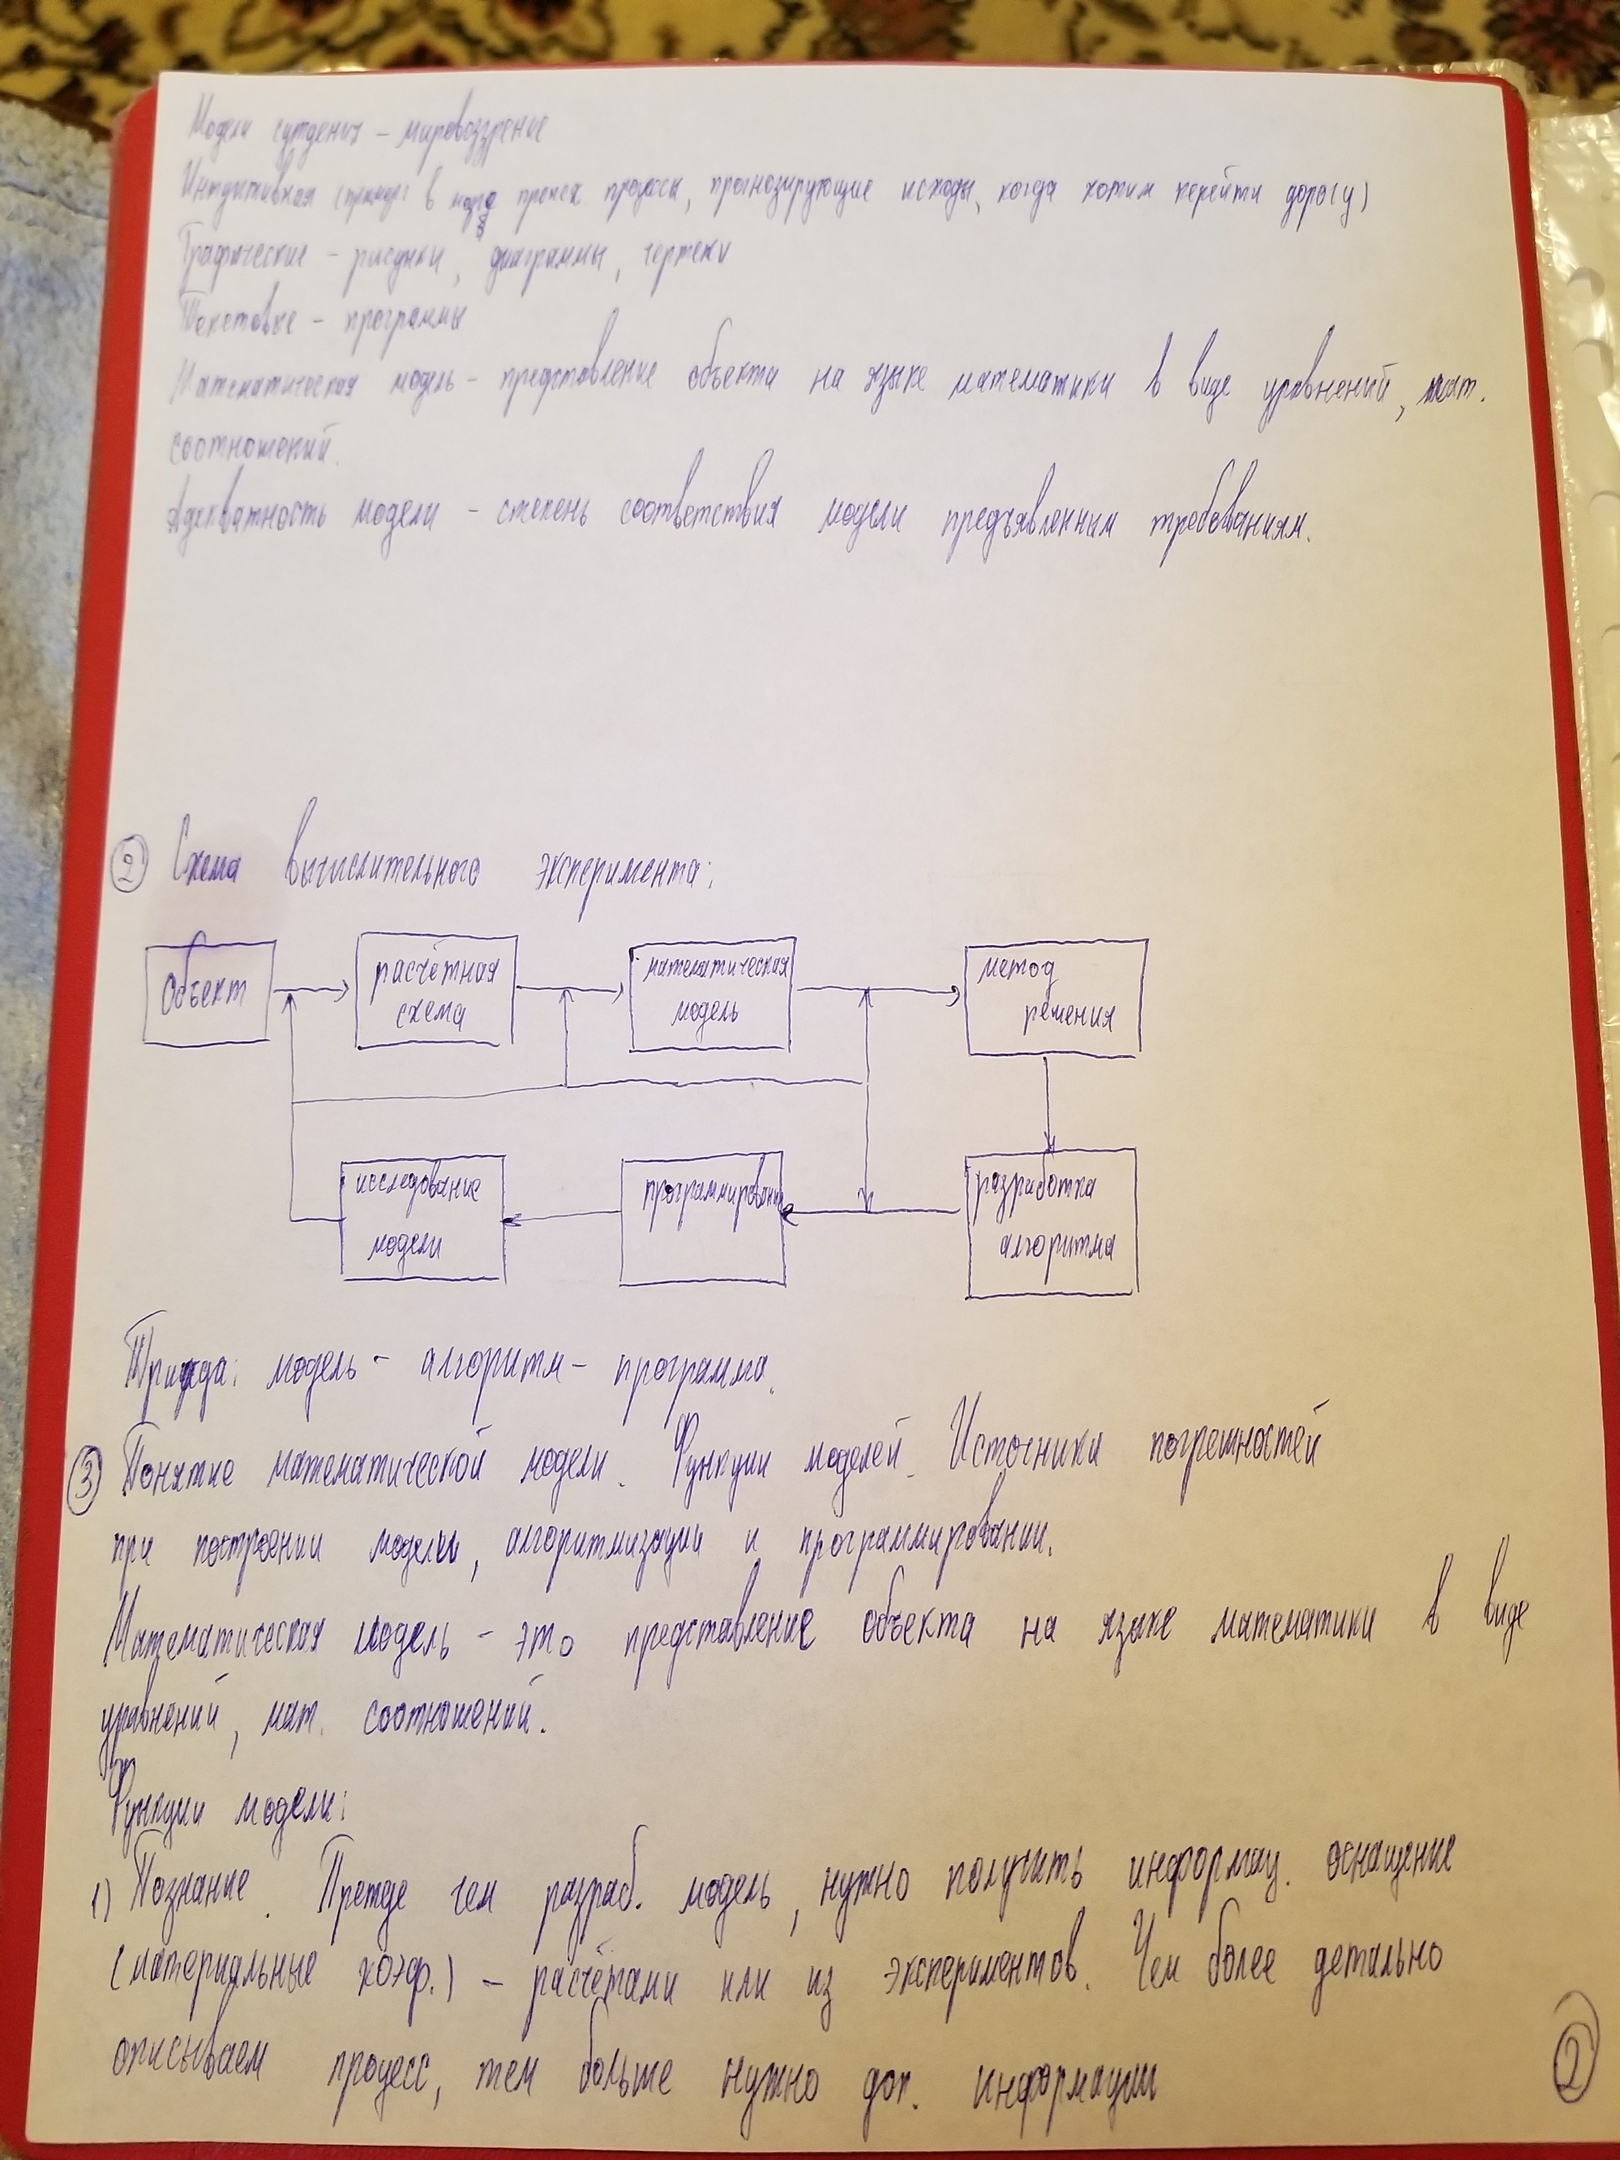 Модели суждения – мировоззрение
Интуитивная (в мозге процессы, прогнозирующие исходы, когда хотим перейти дорогу)
Графические – рисунки, диаграммы, чертежи
Текстовые – программы
Математическая модель – представление объекта на языке математики в виде уравнений, мат.
соотношений.
Адекватность модели – степень соответствия модели предъявленным требованиям.
② Схема вычислительного эксперимента:
объект
расчётная
схема
математическая
модель
метод
решения
исследование
модели
программирование
разработка
алгоритма
Триада: модель – алгоритм – программа.
③ Понятие математической модели. Функции моделей. Источники погрешностей
при построении модели, алгоритмизации и программировании.
Математическая модель – это представление объекта на языке математики в виде
уравнений, мат. соотношений.
Функции модели:
1) Познание. Прежде чем разраб. модель, нужно получить информац. оснащение
(материальные коэф.) – расчётами или из экспериментов. Чем более детально
описываем процесс, тем больше нужно доп. информации
②